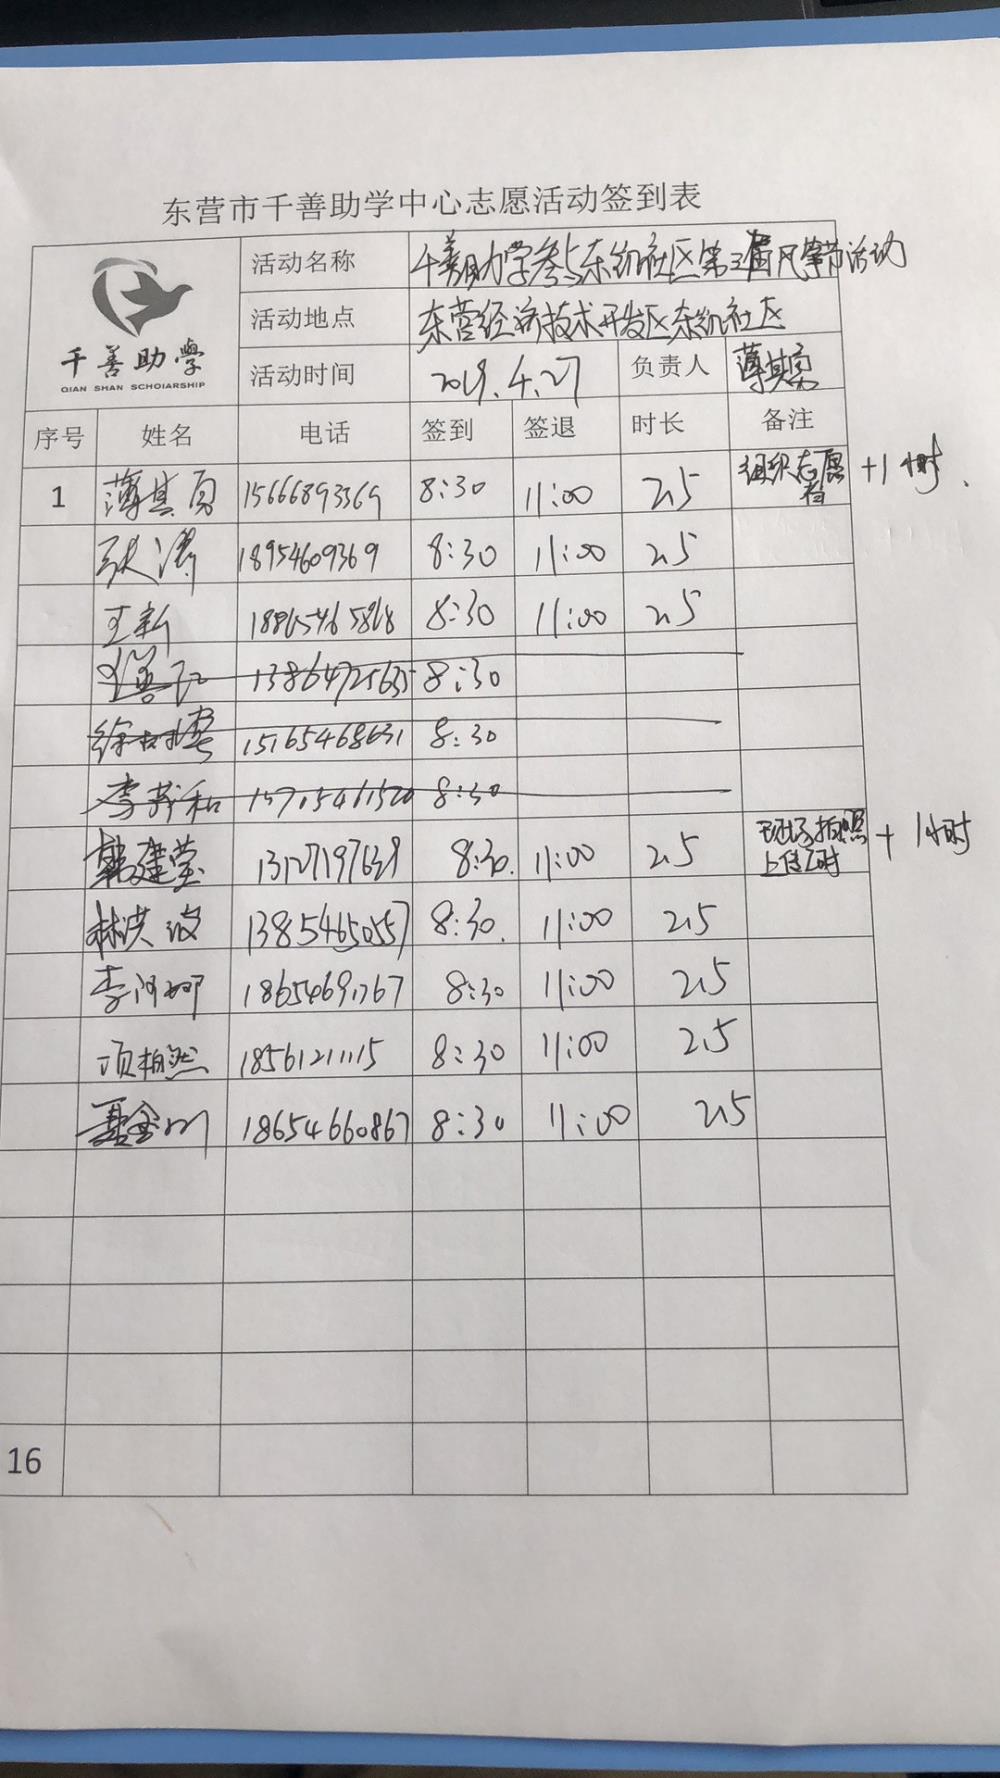 东营市千善助学中心志愿活动签到表
千善助學
QIAN SHAN SCHOIARSHIP
活动名称 千善助学参与东凯社区第三届风筝节活动
活动地点 东营经济技术开发区东凯社区
活动时间 2019.4.27 负责人
序号 姓名 电话 签到 签退 时长 备注
1 15666893369 8:30 11:00 2.5 组织志愿者 +1小时.
张涛 18954609369 8:30 11:00 2.5
王新 18865465868 8:30 11:00 2.5
13864725635 8:30
15165468631 8:30
15705461520 8:30
韩建莹 13127197639 8:30. 11:00 2.5 现场拍照 + 1小时
林洪波 13854650557 8:30. 11:00 2.5
李阿娜 18654691767 8:30 11:00 2.5
项柏然 18561211115 8:30 11:00 2.5
18654660867 8:30 11:00 2.5
16